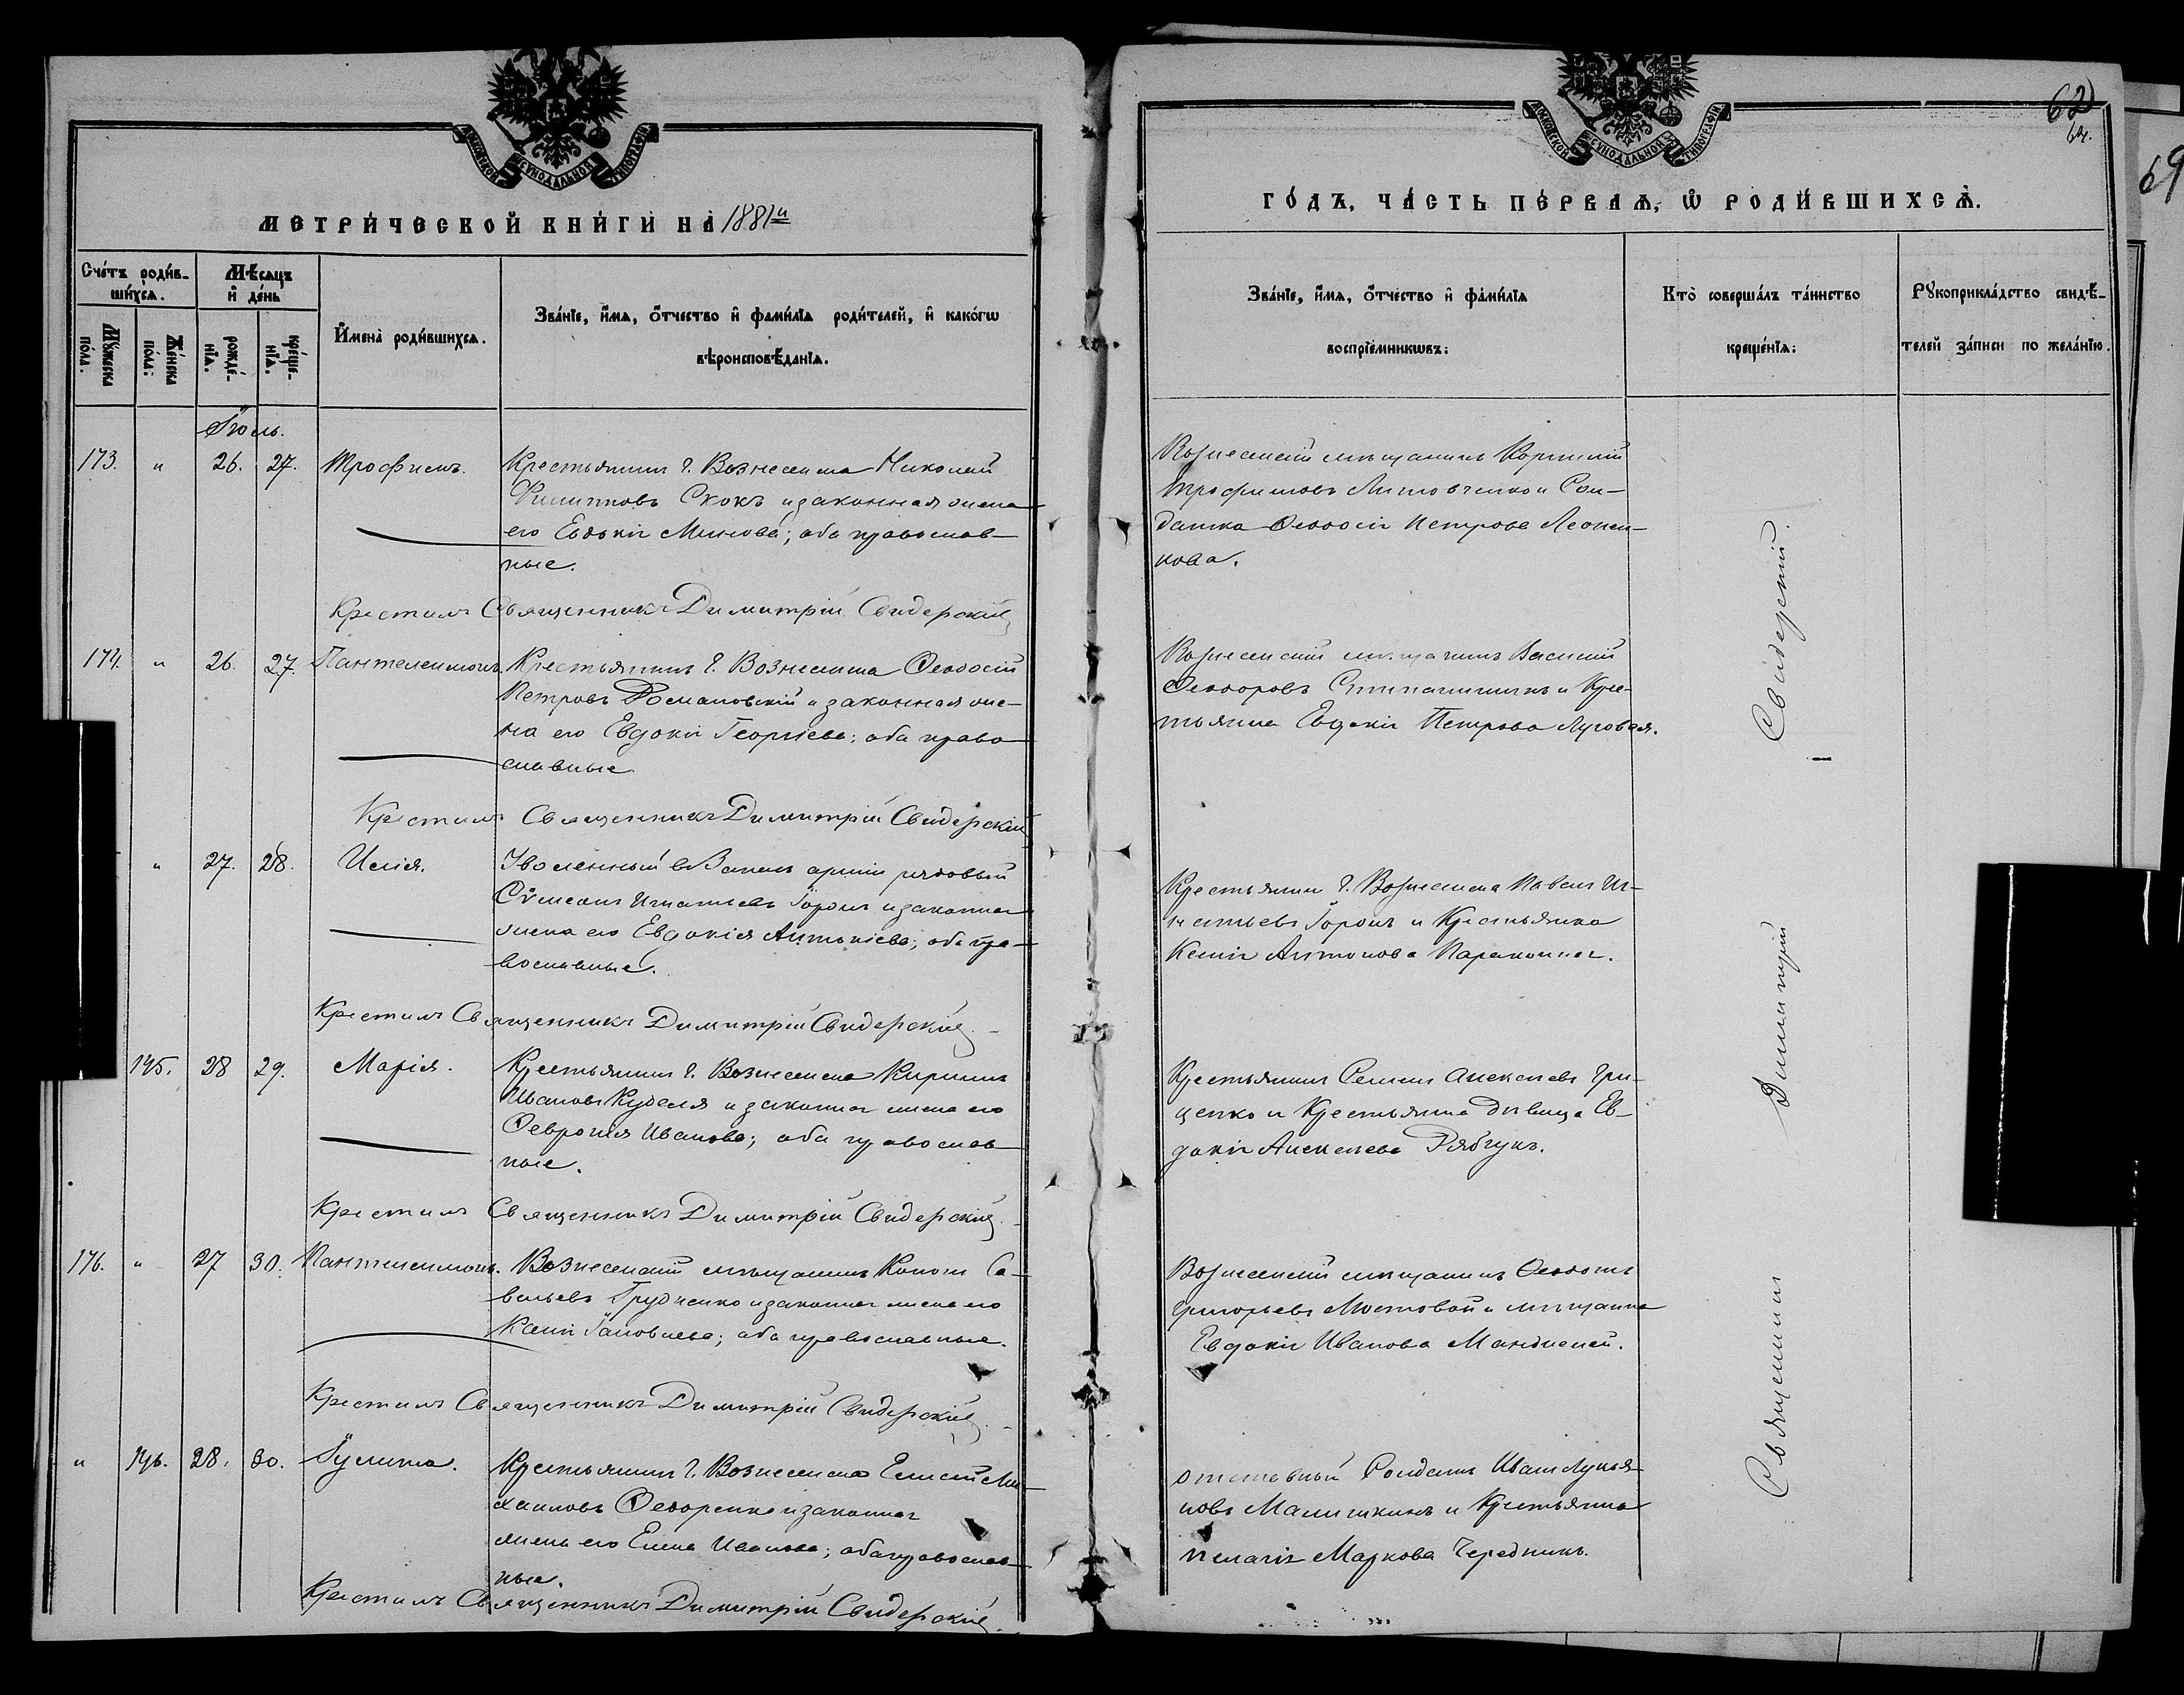 МЕТРИ́ЧЕСКОЙ КНИ́ГИ НА̀ 1881й
Сче́тъ роди́вшихся.
Мѣ́сяцъ и҆ де́нь
Мꙋ́жеска по́ла.
Же́нска по́ла.
рожде́нїѧ.
креще́нїѧ.
И҆мена̀ роди́вшихсѧ.
Зва́нїе, и҆́мѧ, ѻ҆́тчество и҆ фами́лїѧ роди́телей, и҆ како́гѡ
вѣроисповѣ́данїѧ.
Іюль.
173. " 26. 27. Трофимъ. Крестьянинъ г. Вознесенска Николай
Филипповъ Скокъ и законная жена
его Евдокія Минова; оба православ-
ные.
Крестилъ Священникъ Димитрій Свидерскій
174. " 26. 27. Пантелеимонъ. Крестьянинъ г. Вознесенска Ѳеодосій
Петровъ Романовскій и законная же-
на его Евдокія Георгіева; оба право
славные
Крестилъ Священникъ Димитрій Свидерскій
" 27. 28. Илія. Уволенный въ Запасъ арміи рядовый
Сѵмеонъ Игнатьевъ и законная
жена его Евдокія Антоніева; оба пра-
вославные.
Крестилъ Священникъ Димитрій Свидерскій.
145. 28 29. Марія. Крестьянинъ г. Вознесенска Кириллъ
Ивановъ Куделя и законная жена его
Ѳевронія Иванова; оба православ
ные.
Крестилъ Священникъ Димитрій Свидерскій.
176. " 27 30. Пантелеимонъ. Вознесенскій мѣщанинъ Кононъ Са-
вельевъ Грудненко и законная жена его
Ксенія; оба православные.
Крестилъ Священникъ Димитрій Свидерскій.
" 146. 28. 30. Іулита. Крестьянинъ г. Вознесенска Елисей Ми-
хаиловъ Ѳедоренко и законная
жена его Елена Иванова; оба православ-
ные.
Крестилъ Священникъ Димитрій Свидерскій.
62
64.
69
ГО́ДЪ, ЧА́СТЬ ПЕ́РВАѦ, Ѽ РОДИ́ВШИХСѦ.
Зва́нїе, и҆́мѧ, ѻ҆́тчество и҆ фами́лїѧ
воспрїе́мникѡвъ:
Кто̀ соверша́лъ та́инство
креще́нїѧ:
Рꙋкоприкла́дство свидѣ́-
телей за́писи по жела́нїю.
Вознесенскій мѣщанинъ Корнилій
Трофимовъ Литовченко и Сол-
датка Ѳеодосія Петрова Леонен-
кова.
Вознесенскій мѣщанинъ Василій
Ѳеодоровъ и Крес-
тьянка Евдокія Петрова Луговая.
Крестьянинъ г. Вознесенска Павелъ Иг-
натьевъ и Крестьянка
Ксенія Антонова
Крестьянинъ Семенъ Алексѣевъ Гри-
ценко и Крестьянка дѣвица Ев-
докія Алексѣева Рябчукъ.
Вознесенскій мѣщанинъ Ѳеодотъ
Григорьевъ Мостовой и мѣщанка
Евдокія Иванова
отставный Солдатъ Иванъ Лукья-
новъ Малышкинъ и Крестьянка
Пелагія Маркова Чередникъ.
Священникъ Димитрій Свидерскій.